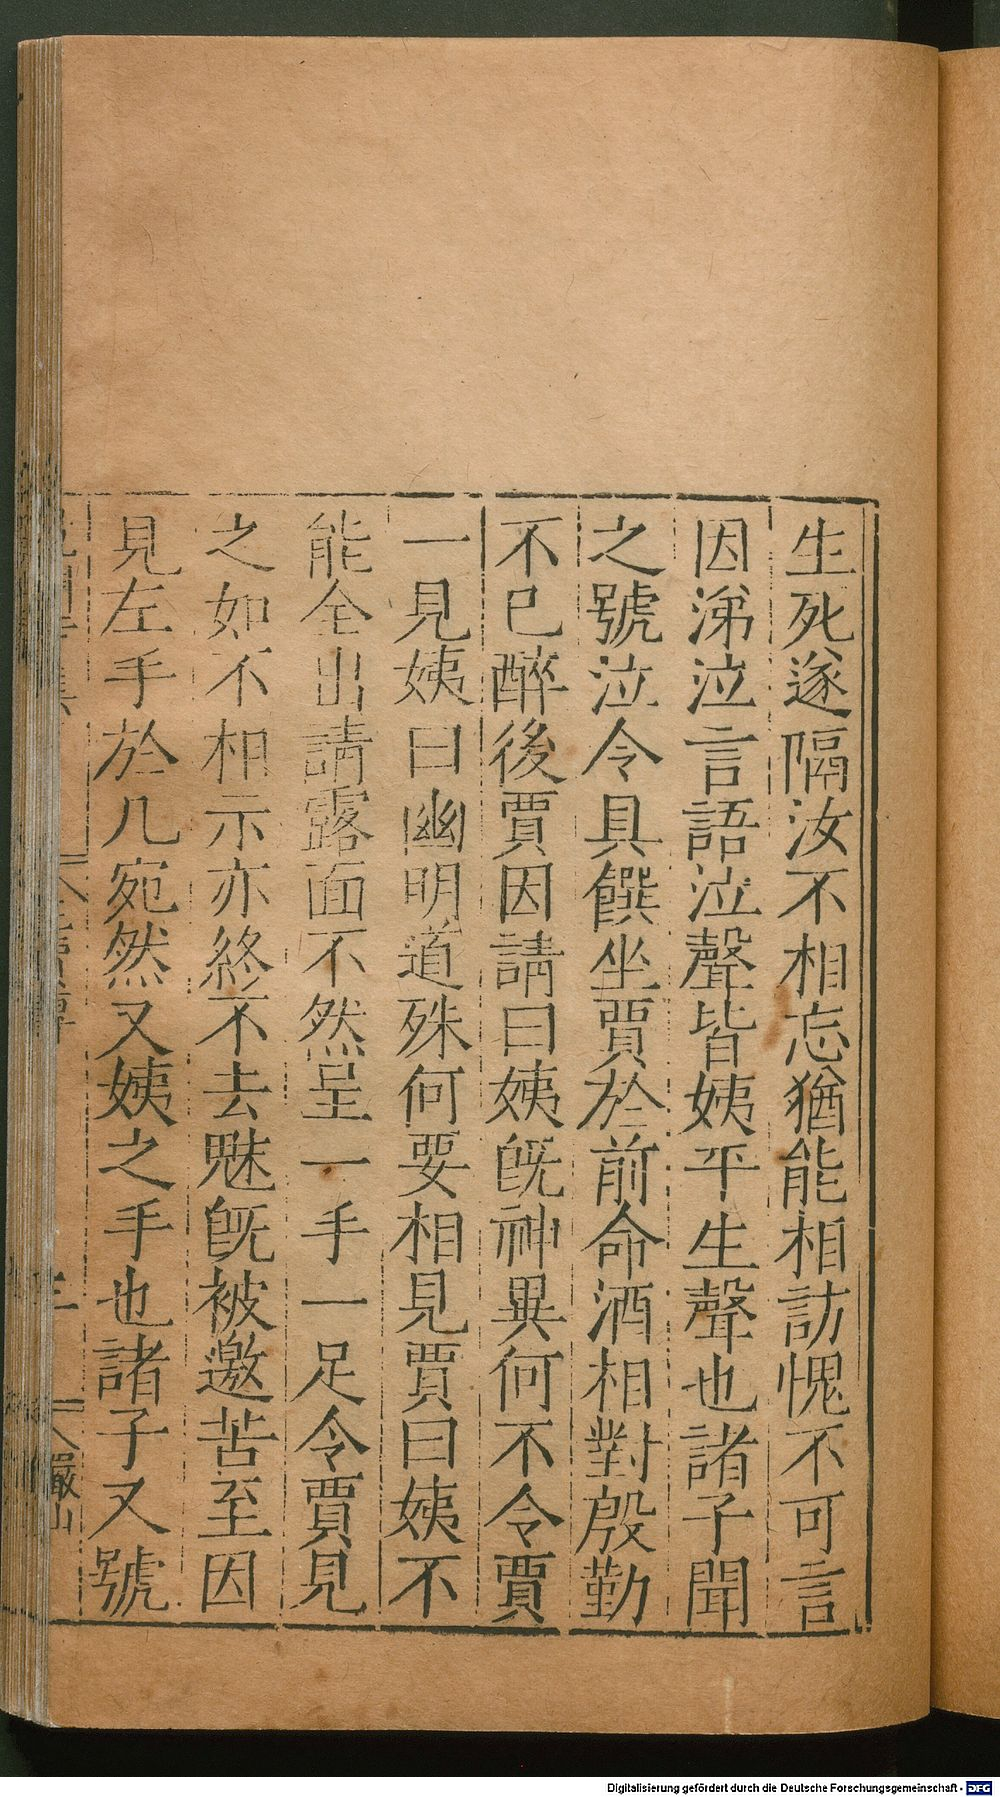 生死遂隔汝不相忘猶能相訪愧不可言
因涕泣言語泣聲皆姨平生聲也諸子聞
之號泣令具饌坐賈於前命酒相對殷勤
不已醉後賈因請曰姨旣神異何不令賈
一見姨曰幽明道殊何要相見賈曰姨不
能全出請露面不然呈一手一足令賈見
之如不相示亦終不去魅旣被邀苦至因
見左手於几宛然又姨之手也諸子又號
三
巖山
Digitalisierung gefördert durch die Deutsche Forschungsgemeinschaft - DFG